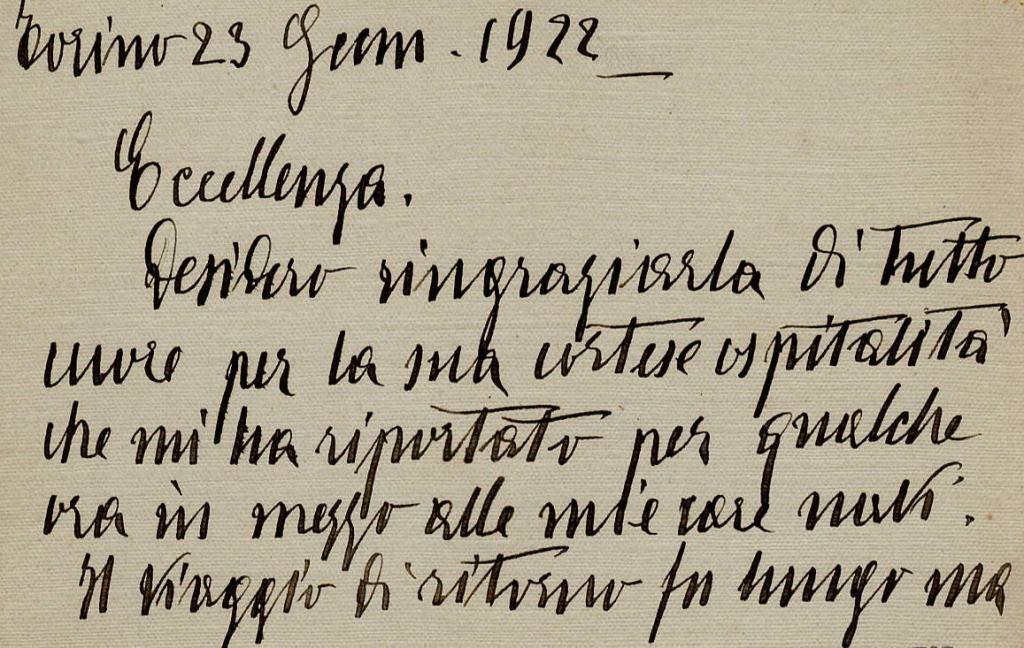 Torino 23 Genn. 1922
Eccellenza.
Desidero ringraziarla di tutto
cuore per la sua cortese ospitalità
che mi ha riportato per qualche
ora in mezzo alle mie care
Il viaggio di ritorno fu lungo ma